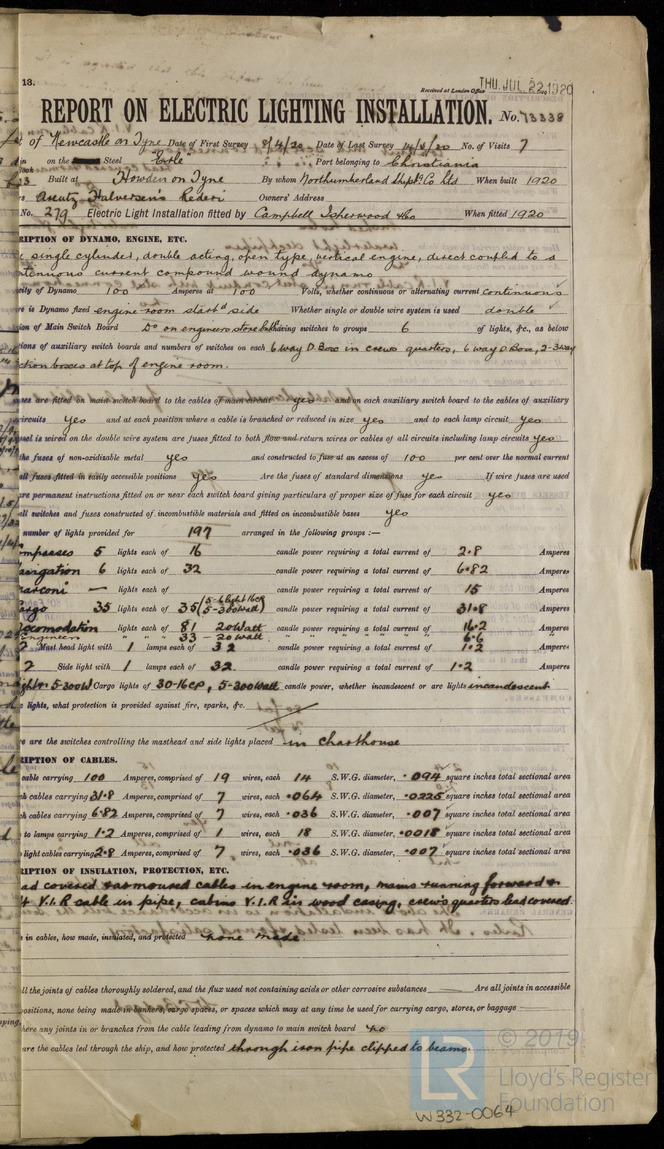 13.
Received at London Office THU. JUL. 22. 1920
REPORT ON ELECTRIC LIGHTING INSTALLATION. No. 73338
of Newcastle on Tyne Date of First Survey 8/4/20 Date of Last Survey 14/6/20 No. of Visits 7
on the Steel "Erle" Port belonging to Christiania
Built at Howden on Tyne By whom Northumberland Shipbg Co Ltd When built 1920
Arentz Halversen's Rederi Owners' Address
No. 279 Electric Light Installation fitted by Campbell Isherwood & Co When fitted 1920
RIPTION OF DYNAMO, ENGINE, ETC.
single cylinder, double acting, open type, vertical engine, direct coupled to a
ntinuous current compound wound dynamo
city of Dynamo 100 Amperes at 100 Volts, whether continuous or alternating current continuous
re is Dynamo fixed engine room starbd side Whether single or double wire system is used double
ion of Main Switch Board Do on engineers store having switches to groups 6 of lights, &c., as below
ions of auxiliary switch boards and numbers of switches on each 6 way D. Box in crews quarters, 6 way D Box, 2-3 way
ction boxes at top of engine room.
ses are fitted on main switch board to the cables of main circuit yes and on each auxiliary switch board to the cables of auxiliary
ircuits yes and at each position where a cable is branched or reduced in size yes and to each lamp circuit yes
ssel is wired on the double wire system are fuses fitted to both flow and return wires or cables of all circuits including lamp circuits yes
the fuses of non-oxidizable metal yes and constructed to fuse at an excess of 100 per cent over the normal current
all fuses fitted in easily accessible positions yes Are the fuses of standard dimensions yes If wire fuses are used
are permanent instructions fitted on or near each switch board giving particulars of proper size of fuse for each circuit yes
all switches and fuses constructed of incombustible materials and fitted on incombustible bases yes
number of lights provided for 197 arranged in the following groups :—
ompasses 5 lights each of 16 candle power requiring a total current of 2.8 Amperes
avigation 6 lights each of 32 candle power requiring a total current of 6.82 Amperes
arconi — lights each of candle power requiring a total current of 15 Amperes
argo 35 lights each of 35 (5-6 light 16cp 5-300 watt) candle power requiring a total current of 31.8 Amperes
ccomodation lights each of 81 20 Watt candle power requiring a total current of 16.2 Amperes
Engineers " " " 33 - 20 watt " " " " " " 6.6 "
2 Mast head light with 1 lamps each of 32 candle power requiring a total current of 1.2 Amperes
2 Side light with 1 lamps each of 32 candle power requiring a total current of 1.2 Amperes
5-300W Cargo lights of 30-16CP, 5-300 Watt candle power, whether incandescent or arc lights incandescent
c lights, what protection is provided against fire, sparks, &c.
re are the switches controlling the masthead and side lights placed in charthouse
RIPTION OF CABLES.
cable carrying 100 Amperes, comprised of 19 wires, each 14 S.W.G. diameter, .094 square inches total sectional area
h cables carrying 31.8 Amperes, comprised of 7 wires, each .064 S.W.G. diameter, .0225 square inches total sectional area
h cables carrying 6.82 Amperes, comprised of 7 wires, each .036 S.W.G. diameter, .007 square inches total sectional area
to lamps carrying 1.2 Amperes, comprised of 1 wires, each 18 S.W.G. diameter, .0018 square inches total sectional area
light cables carrying 2.8 Amperes, comprised of 7 wires, each .036 S.W.G. diameter, .007 square inches total sectional area
RIPTION OF INSULATION, PROTECTION, ETC.
ad covered & armoured cables in engine room, mains running forward &
V.I.R cable in pipe, cabins V.I.R in wood casing, crew's quarters lead covered.
s in cables, how made, insulated, and protected none made
ll the joints of cables thoroughly soldered, and the flux used not containing acids or other corrosive substances Are all joints in accessible
ositions, none being made in bunkers, cargo spaces, or spaces which may at any time be used for carrying cargo, stores, or baggage
here any joints in or branches from the cable leading from dynamo to main switch board no
are the cables led through the ship, and how protected through iron pipe clipped to beams.
© 2019
LR Lloyd's Register
Foundation
W332-0064